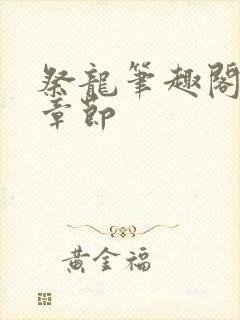 祭龍筆趣閣
章節
黃金福